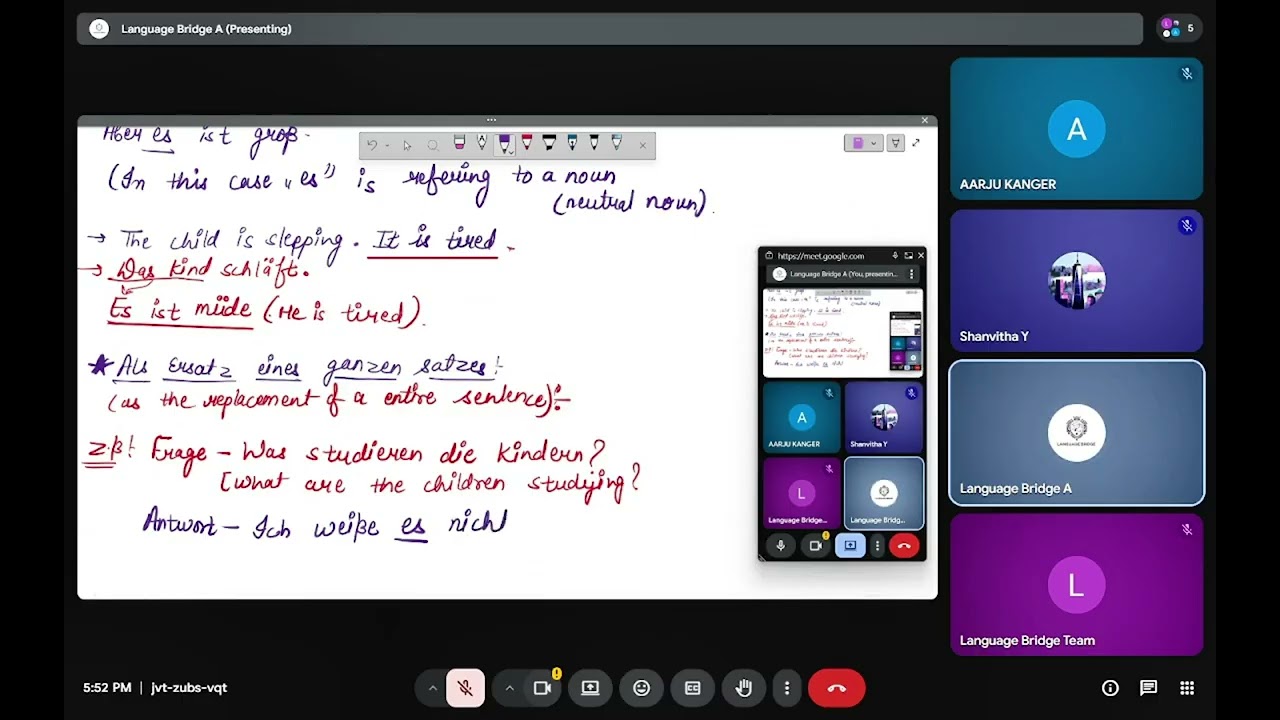 Language Bridge A (Presenting)
5
Aber es ist groß.
(In this case „es" is refering to a noun
(neutral noun).
→ The child is slepping. It is tired.
→ Das Kind schläft.
Es ist müde (He is tired).
* Als Ersatz eines ganzen satzes:
(as the replacement of a entire sentence):-
z.B: Frage – Was studieren die Kindern?
[what are the children studying?
Antwort – Ich weiße es nicht
https://meet.google.com
Language Bridge A (You, presentin...
AARJU KANGER
Shanvitha Y
L
Language Bridge...
Languag Bridg...
A
AARJU KANGER
Shanvitha Y
Language Bridge A
L
Language Bridge Team
5:52 PM | jvt-zubs-vqt